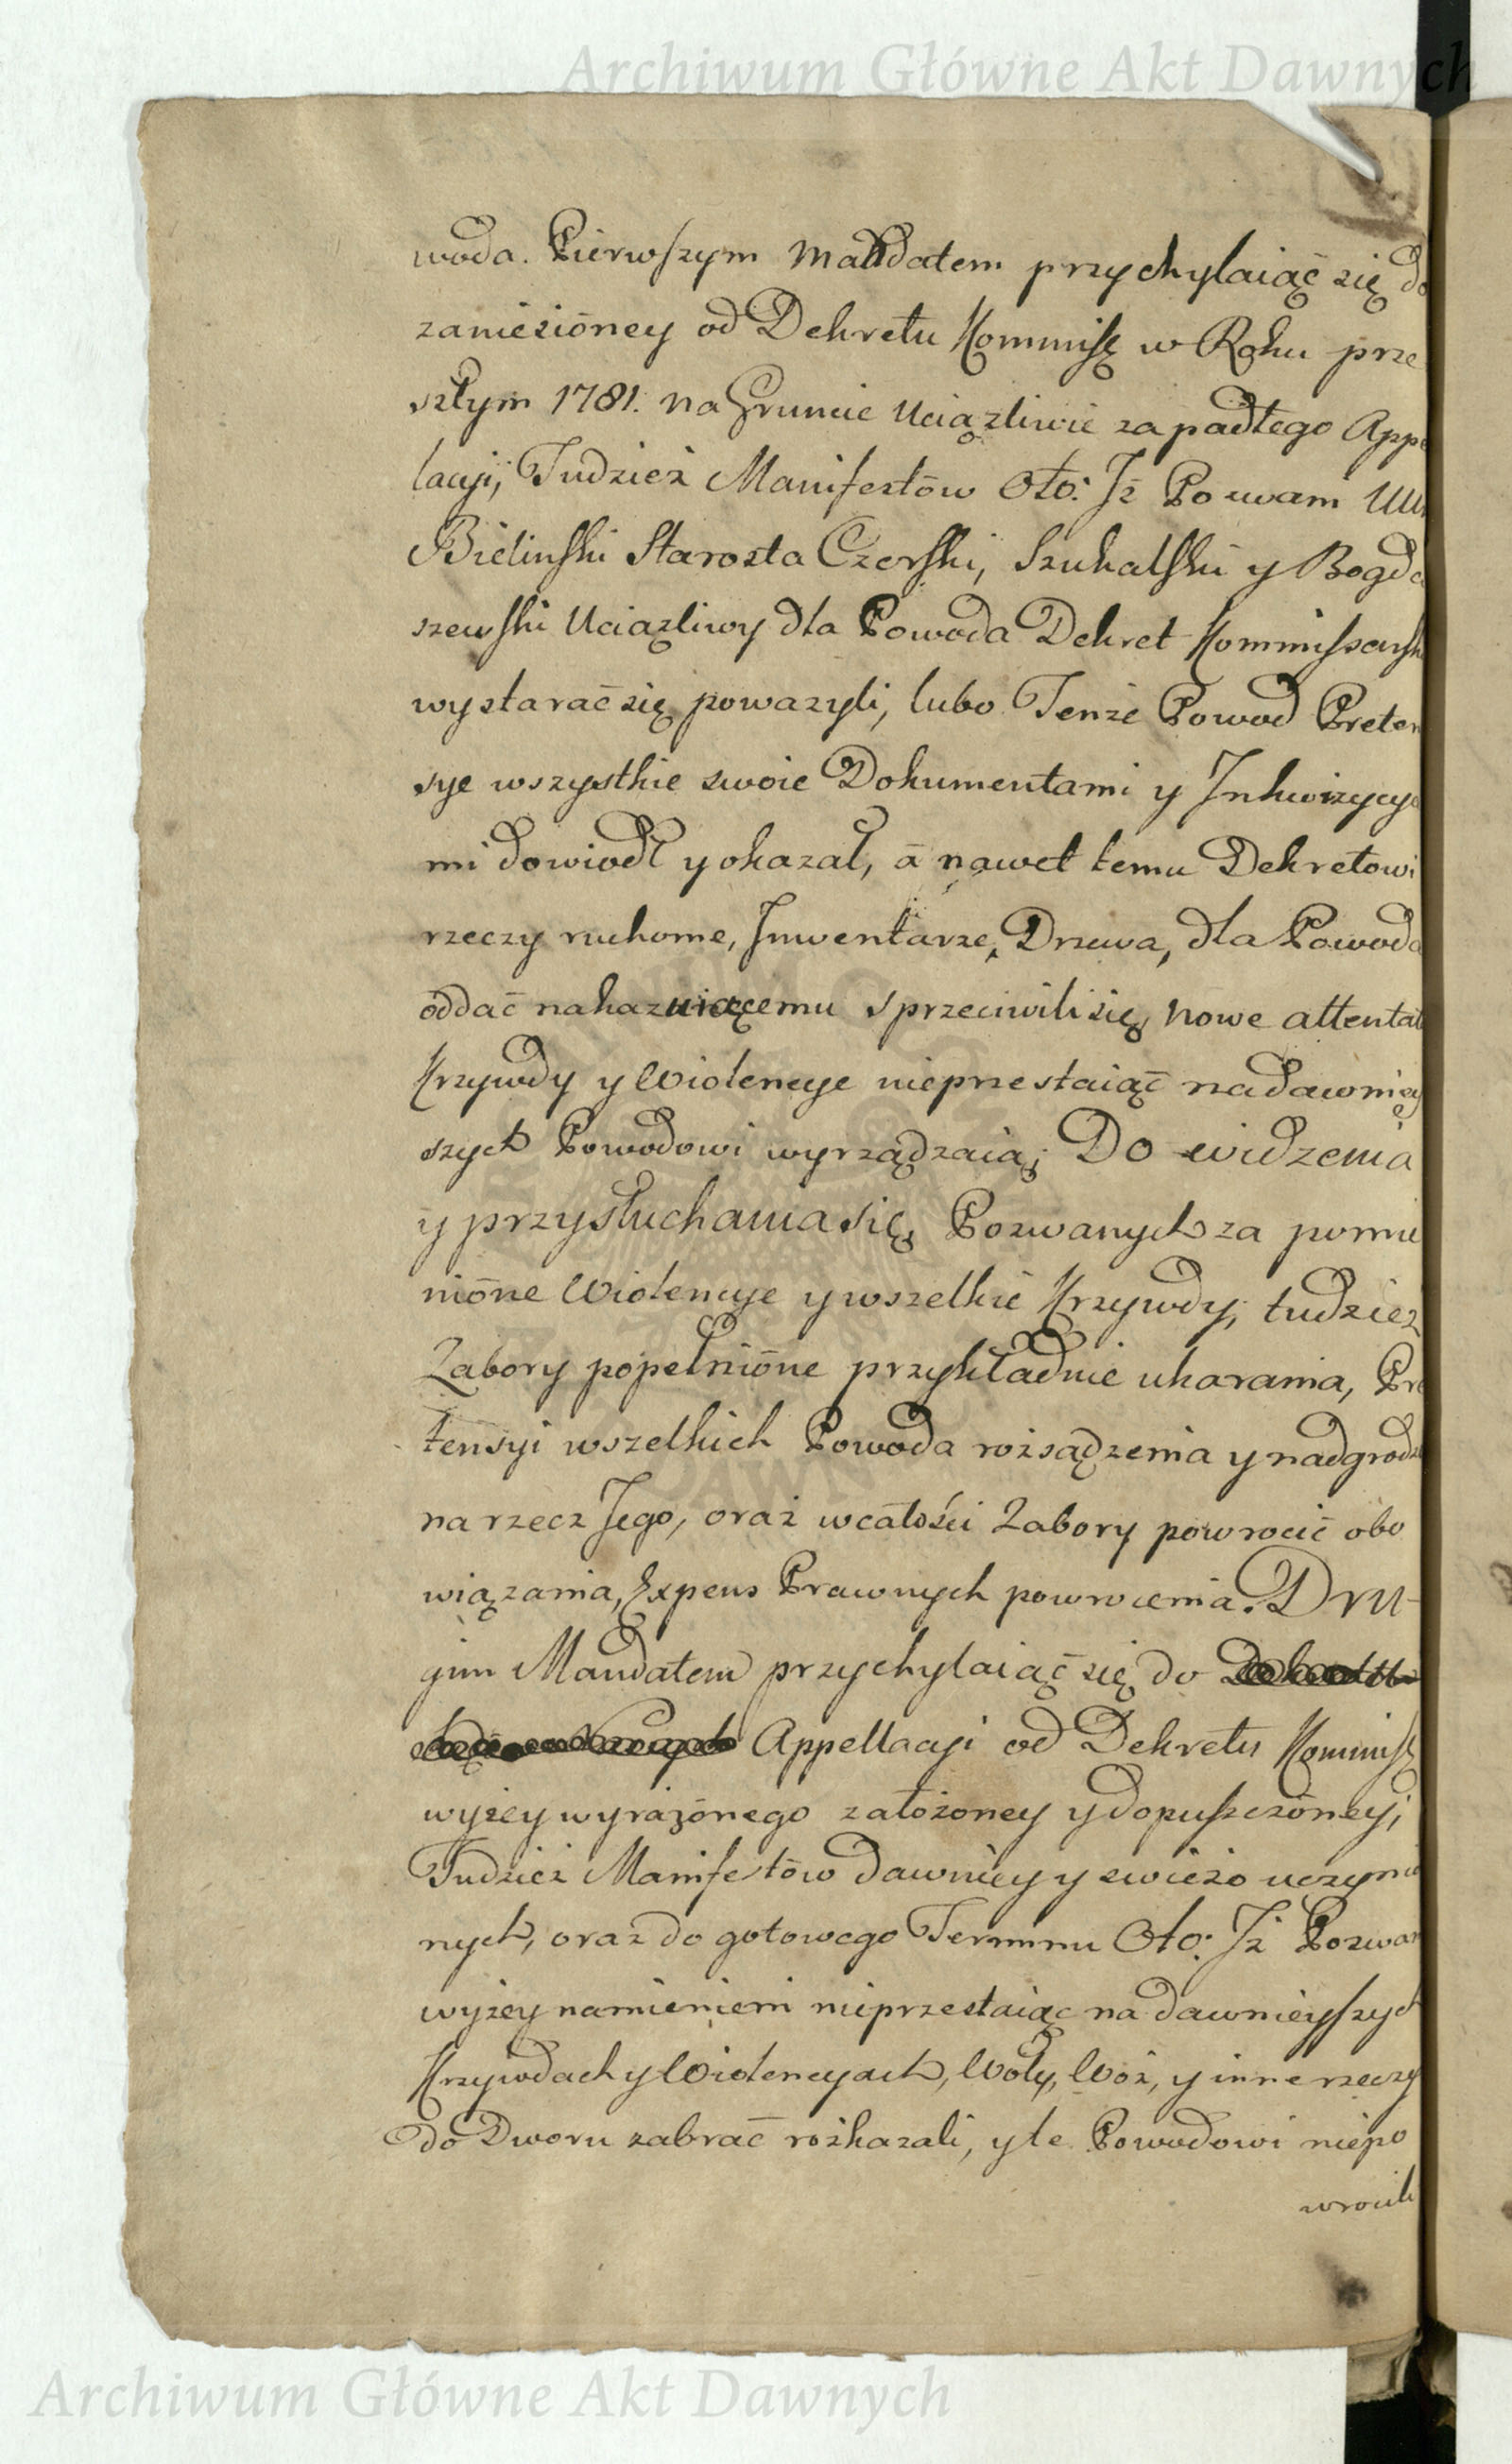 Archiwum Główne Akt Dawnych
woda. Pierwszym Mandatem przychylaiąc się do
zaniesioney od Dekretu Kommisſ w Roku prze
szłym 1781. na Gruncie Uciązliwie zapadłego Appe
lacyi, Tudziez Manifestōw Oto: Jż Pozwani UUr
Bielinski Starosta Czerski, Szukalski y Bogda
szewski Uciązliwy dla Powoda Dekret Kommissarsk
wystarać się powazyli, lubo Tenze Powod Preten
sye wszystkie swoie Dokumentami y Jnkwizycya
mi dowiodł y okazał, a nawet temu Dekretowi
rzeczy ruchome, Jnwentarze, Drzewa, dla Powoda
oddać nakazuiącemu sprzeciwili się, nowe attentat
Krzywdy y Wiolencye nieprzestaiąc na dawniey
szych Powodowi wyrządzaią; Do widzenia
y przysłuchania się, Pozwanych za pomie
nione Wiolencye y wszelkie Krzywdy, tudziez
Zabory popełnione przykładnie ukarania, Pre
tensyi wszelkich Powoda rozsądzenia y nadgrodz
na rzecz Jego, oraz w całości Zabory powrocić obo
wiązania, Expens Prawnych powrocenia. Dru-
gim Mandatem przychylaiąc się do
Appellacyi od Dekretu Kommisſ
wyżey wyrażonego założoney y dopuszczoney;
Tudziez Manifestōw dawniey y swieżo uczynio
nych, oraz do gotowego Terminu Oto: Jż Pozwan
wyżey namienieni nieprzestaiąc na dawnieyszych
Krzywdach y Wiolencyach, Woły, Wóz, y inne rzeczy
do Dworu zabrać rożkazali, y te Powodowi niepo
wrocili
Archiwum Główne Akt Dawnych